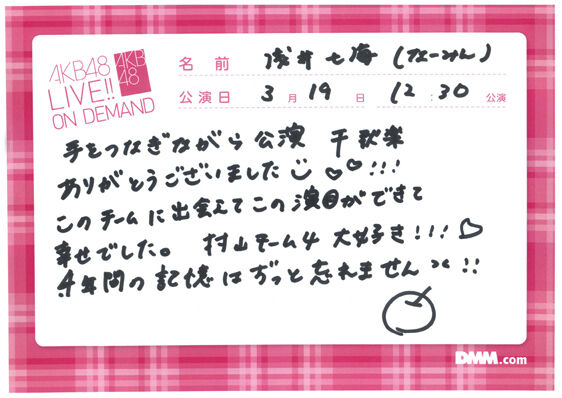 AKB48
LIVE!!
ON DEMAND
AKB
48
名前 浅井七海(なーみん)
公演日 3月19日 12:30公演
手をつなぎながら公演 千秋楽
ありがとうございました!!!
このチームに出会えてこの演目ができて
幸せでした。 村山チーム4 大好き!!!
4年間の記憶はずっと忘れません !!
DMM.com